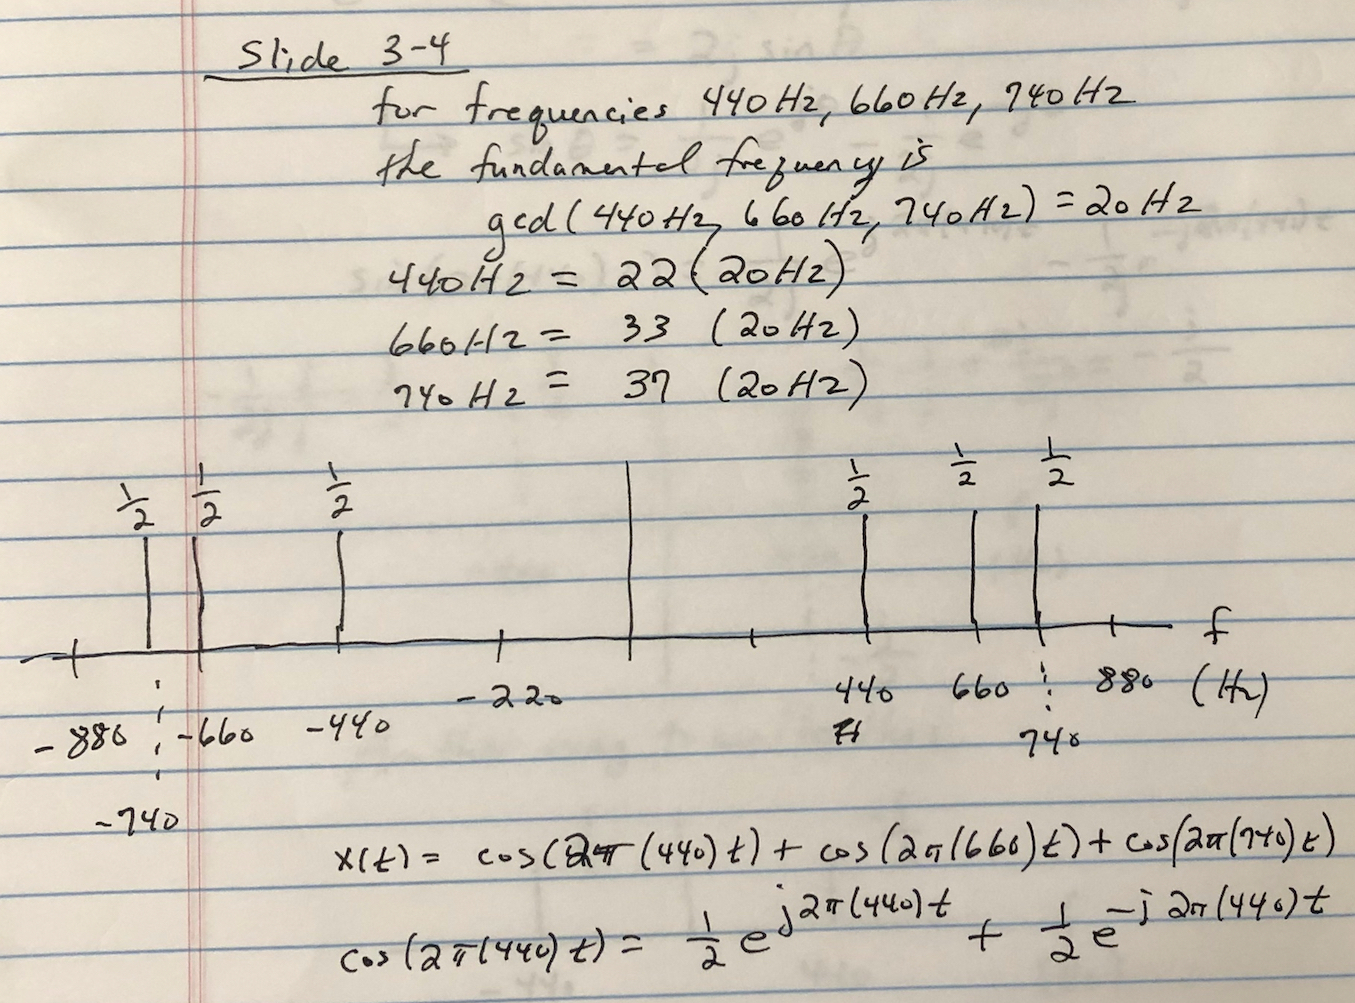 Slide 3-4
for frequencies 440Hz, 660Hz, 740Hz
the fundamental frequency is
gcd(440Hz, 660Hz, 740Hz) = 20Hz
440Hz = 22(20Hz)
660Hz = 33 (20Hz)
740Hz = 37 (20Hz)
1/2 1/2 1/2 1/2 1/2 1/2
f
-880 -660 -440 -220 440 660 880 (Hz)
-740 740
x(t) = cos(2π(440)t) + cos(2π(660)t) + cos(2π(740)t)
cos(2π(440)t) = 1/2 e^{j2π(440)t} + 1/2 e^{-j2π(440)t}